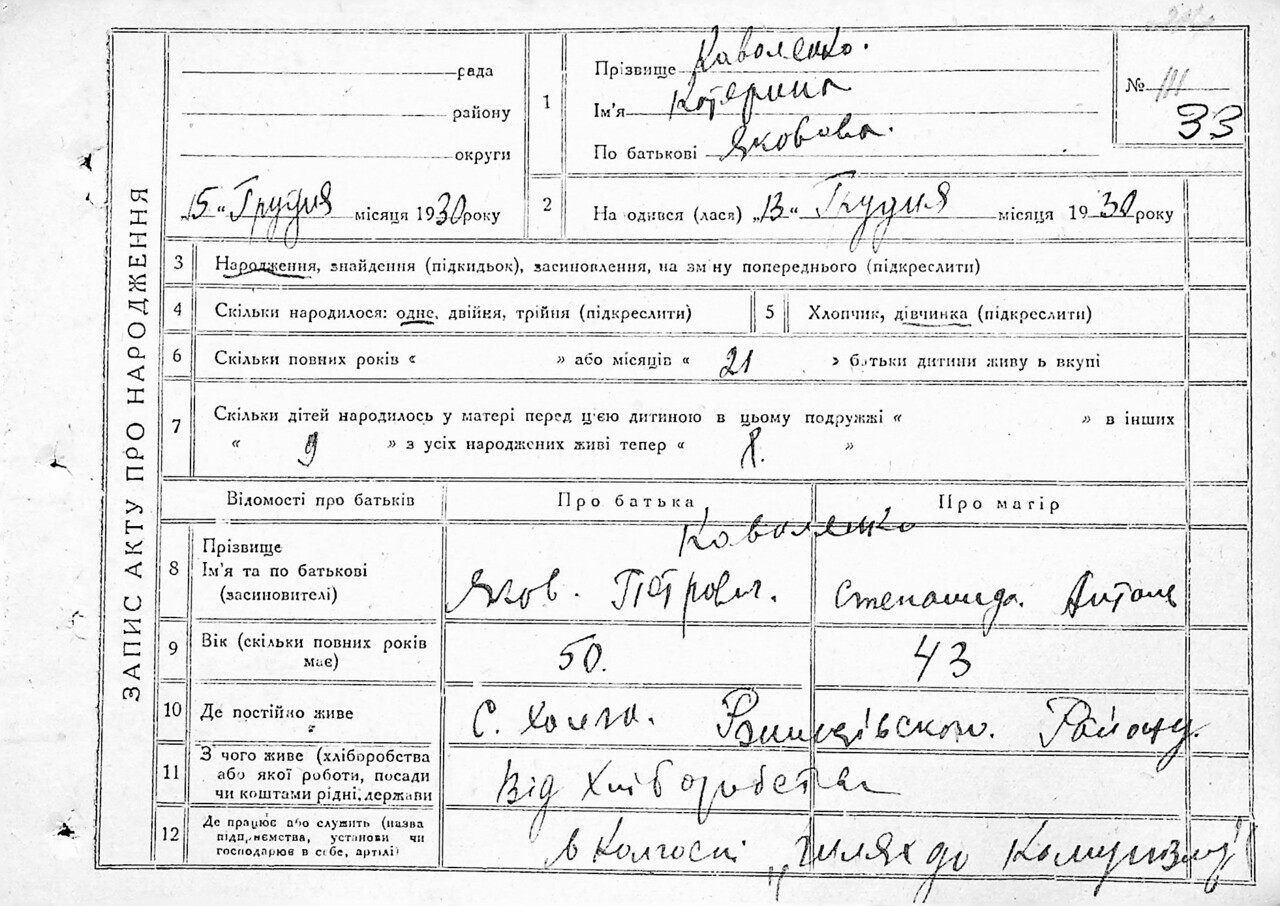 ЗАПИС АКТУ ПРО НАРОДЖЕННЯ
рада
району
округи
„15“ Грудня місяця 1930 року
1
Прізвище Каволенко.
Ім'я Котерина
По батькові Яковова.
№ 111
33
2
На одився (лася) „13“ Грудня місяця 1930 року
3 Народження, знайдення (підкидьок), засиновлення, на зм ну попереднього (підкреслити)
4 Скільки народилося: одне, двійня, трійня (підкреслити)
5 Хлопчик, дівчинка (підкреслити)
6 Скільки повних років « » або місяців « 21 » батьки дитини живу ь вкупі
7 Скільки дітей народилось у матері перед ц'єю дитиною в цьому подружжі « » в інших
« 9 » з усіх народжених живі тепер « 8. »
Відомості про батьків
Про батька
Про матір
8
Прізвище
Ім'я та по батькові
(засиновителі)
Коваленко
Яков. Петрович.
Степанида. Антонь
9 Вік (скільки повних років
має)
50.
43
10 Де постійно живе
С. Халча. Ржищівского. Району.
11
З чого живе (хліборобства
або якої роботи, посади
чи коштами рідні, держави
Від Хліборобства
12
Де працює або служить (назва
підпр'ємства, установи чи
господарює в себе, артілі)
в Колгоспі „Шлях до Комунізму“